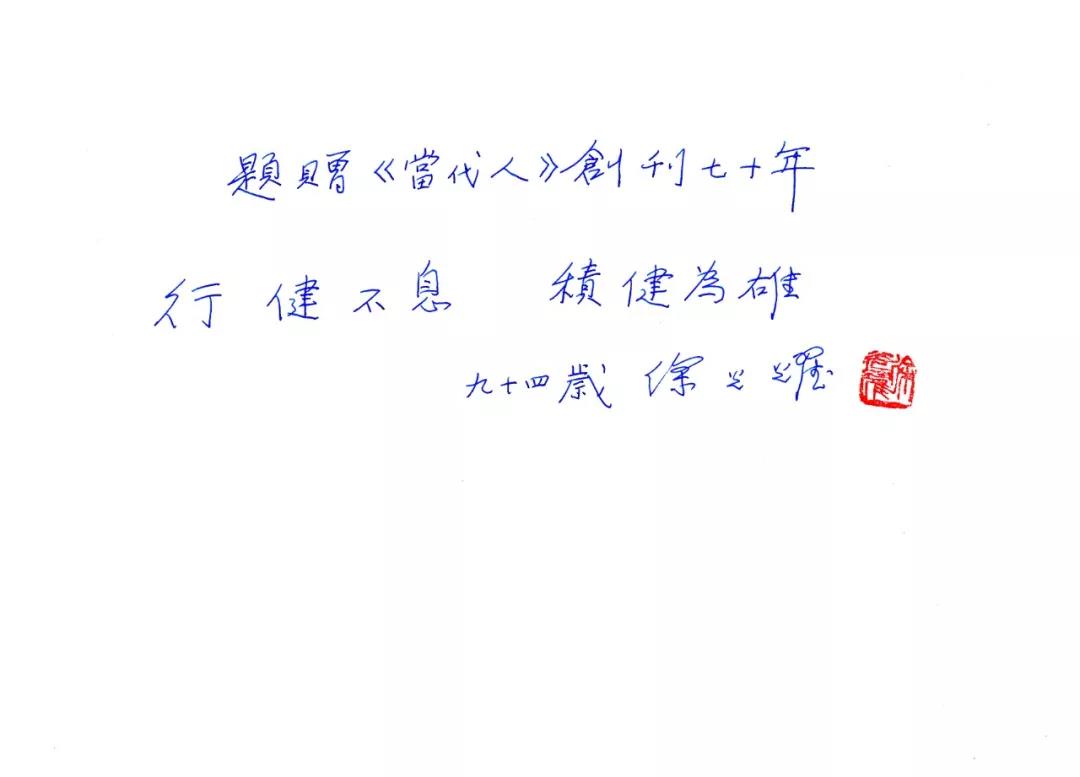 題贈《當代人》創刊七十年
行健不息 積健為雄
九十四歲 徐光耀